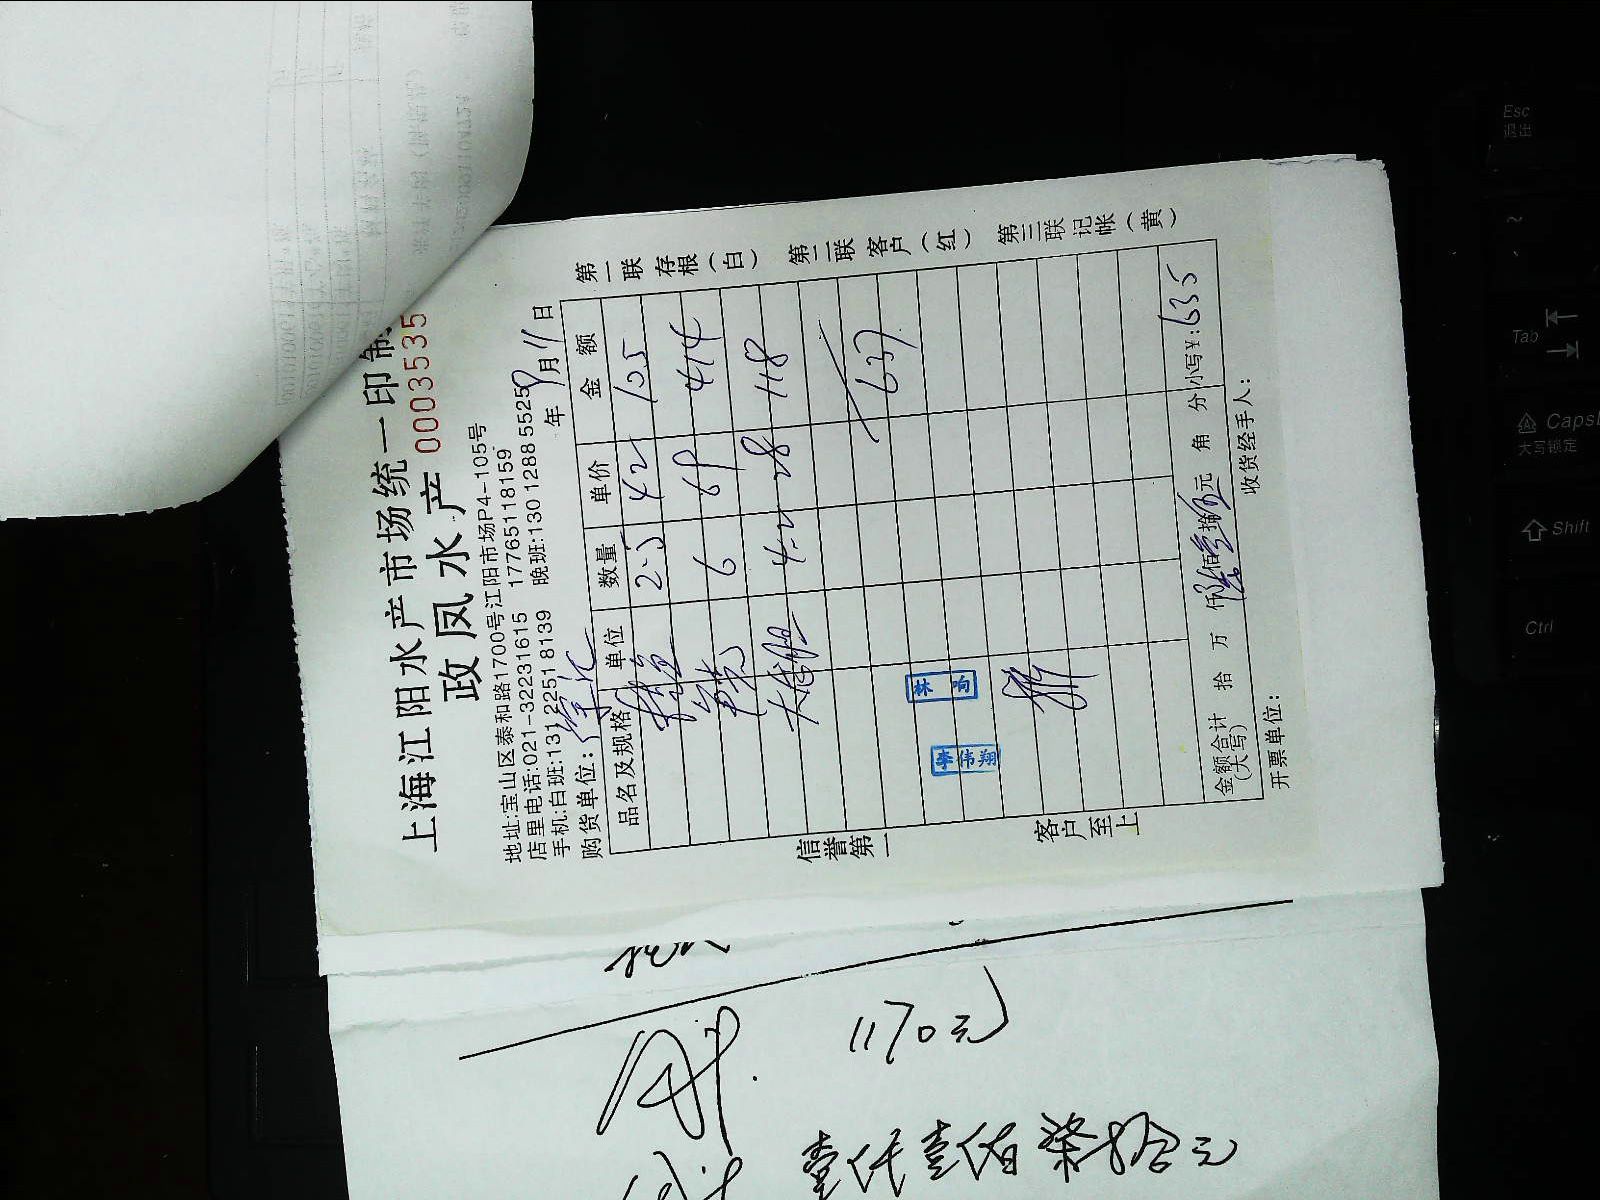 上海江阳水产市场统一印制
政凤水产 0003535
地址:宝山区泰和路1700号江阳市场P4-105号
店里电话:021-32231615 17765118159
手机:白班:131 2251 8139 晚班:130 1288 5525
购货单位: 年 9月11日
品名及规格 单位 数量 单价 金额
2.5 42 105
6 69 414
4.2 28 118
637
林响
李伟翔
金额合计(大写) 拾 万 仟陆佰叁拾伍元 角 分 小写¥:635
开票单位: 收货经手人:
信誉第一
客户至上
第一联存根(白) 第二联客户(红) 第三联记帐(黄)
1170元
壹仟壹佰柒拾元
Esc
退出
Tab
Caps
大写锁定
Shift
Ctrl